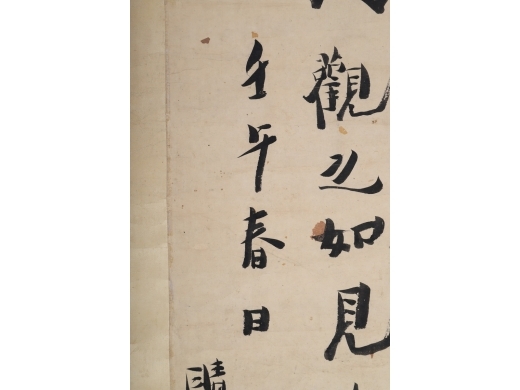 觀之如見
壬午春日
晴